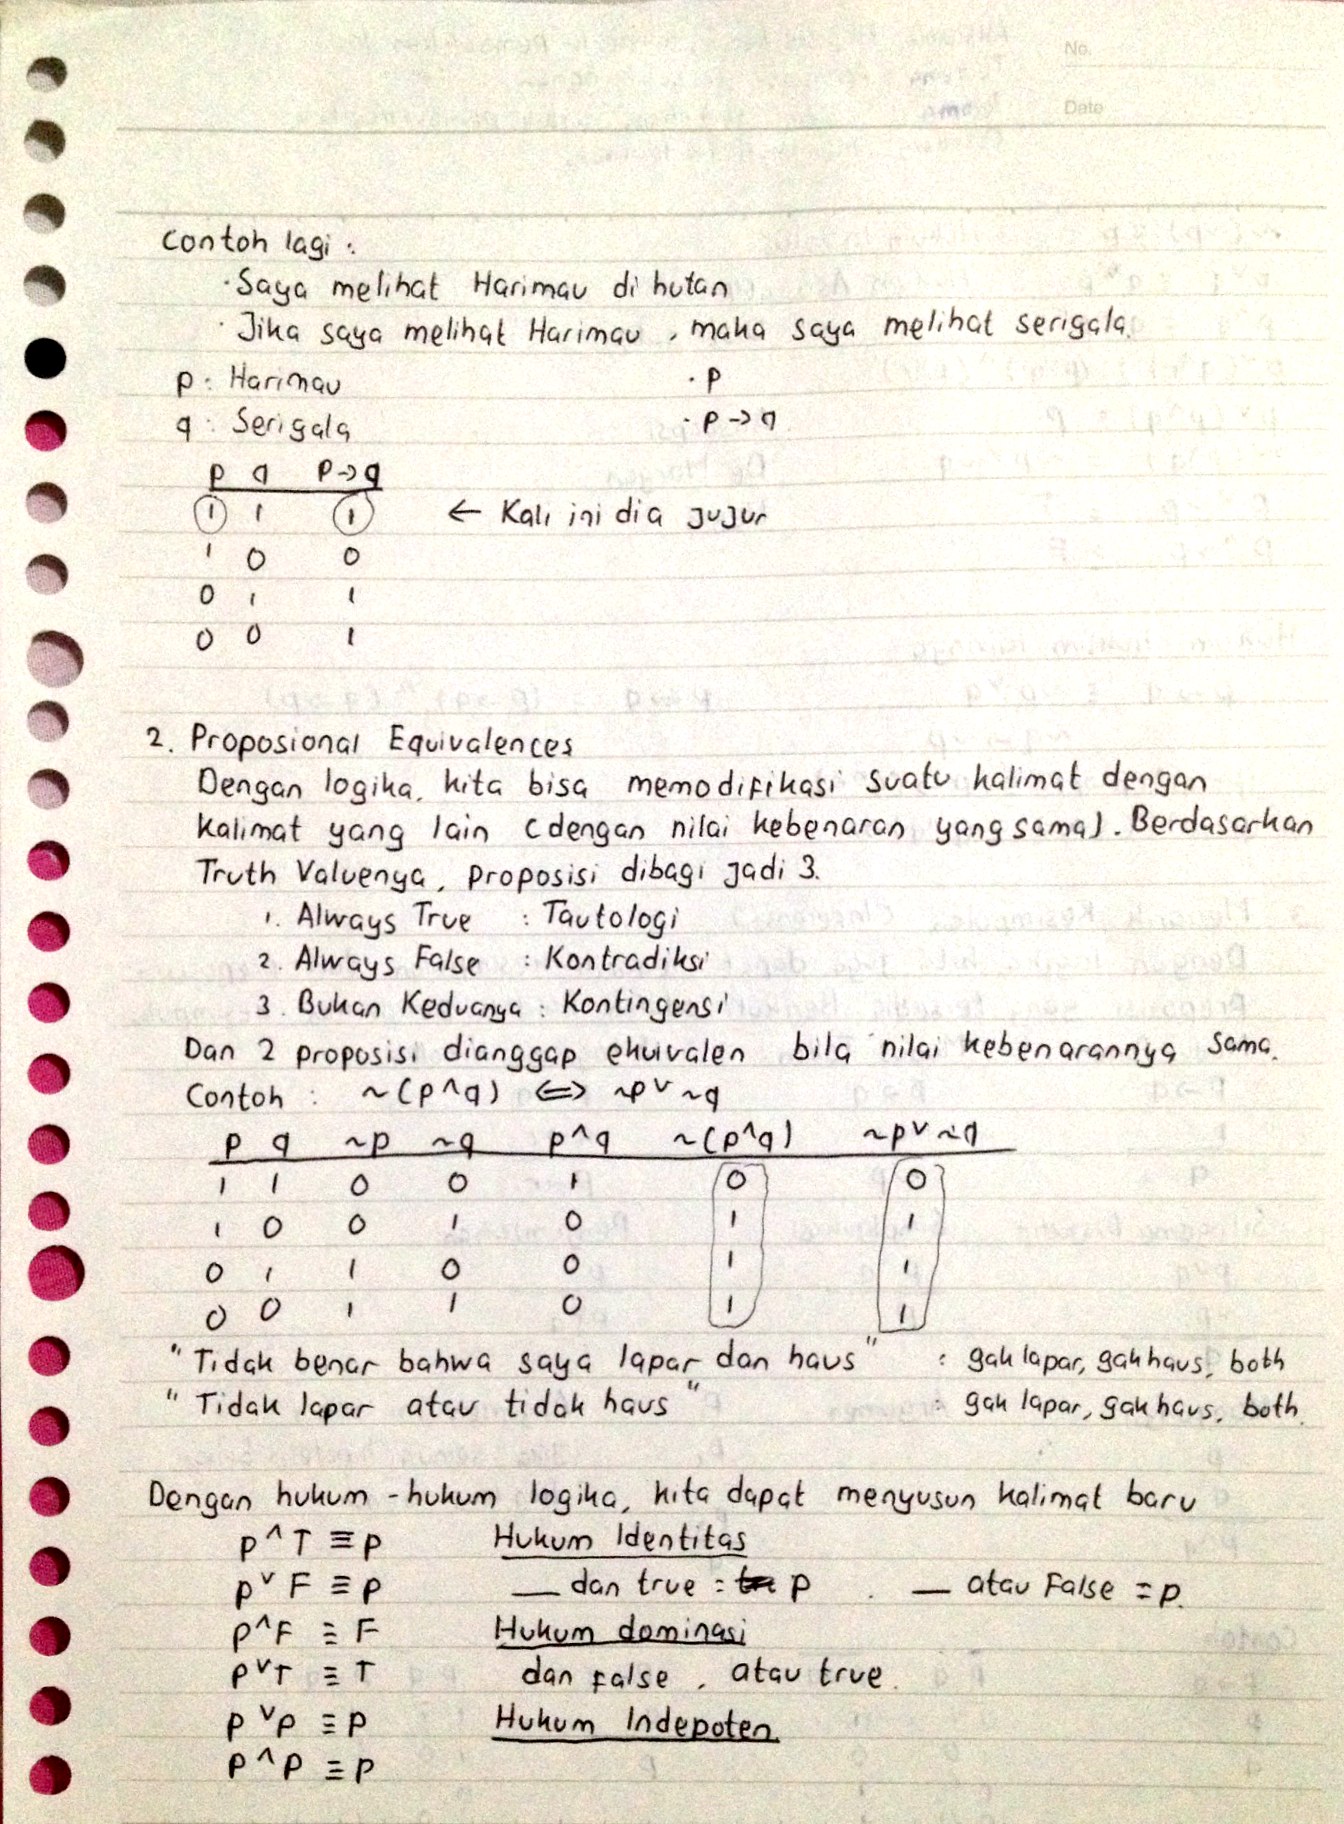 No.
Date
Contoh lagi :
· Saya melihat Harimau di hutan
· Jika saya melihat Harimau, maka saya melihat serigala.
p : Harimau · p
q : Serigala · p → q
p q p → q
1 1 1 ← Kali ini dia jujur
1 0 0
0 1 1
0 0 1
2. Proposional Equivalences
Dengan logika, kita bisa memodifikasi suatu kalimat dengan
kalimat yang lain (dengan nilai kebenaran yang sama). Berdasarkan
Truth Valuenya, proposisi dibagi jadi 3.
1. Always True : Tautologi
2. Always False : Kontradiksi
3. Bukan Keduanya : Kontingensi
Dan 2 proposisi dianggap ekuivalen bila nilai kebenarannya sama.
Contoh : ~(p ^ q) ⇔ ~p ∨ ~q
p q ~p ~q p ^ q ~(p ^ q) ~p ∨ ~q
1 1 0 0 1 0 0
1 0 0 1 0 1 1
0 1 1 0 0 1 1
0 0 1 1 0 1 1
"Tidak benar bahwa saya lapar dan haus" : gak lapar, gak haus, both
"Tidak lapar atau tidak haus" : gak lapar, gak haus, both.
Dengan hukum-hukum logika, kita dapat menyusun kalimat baru
p ^ T ≡ p Hukum Identitas
p ∨ F ≡ p __ dan true = p . __ atau False = p.
p ^ F ≡ F Hukum dominasi
p ∨ T ≡ T dan false , atau true.
p ∨ p ≡ p Hukum Indepoten
p ^ p ≡ p